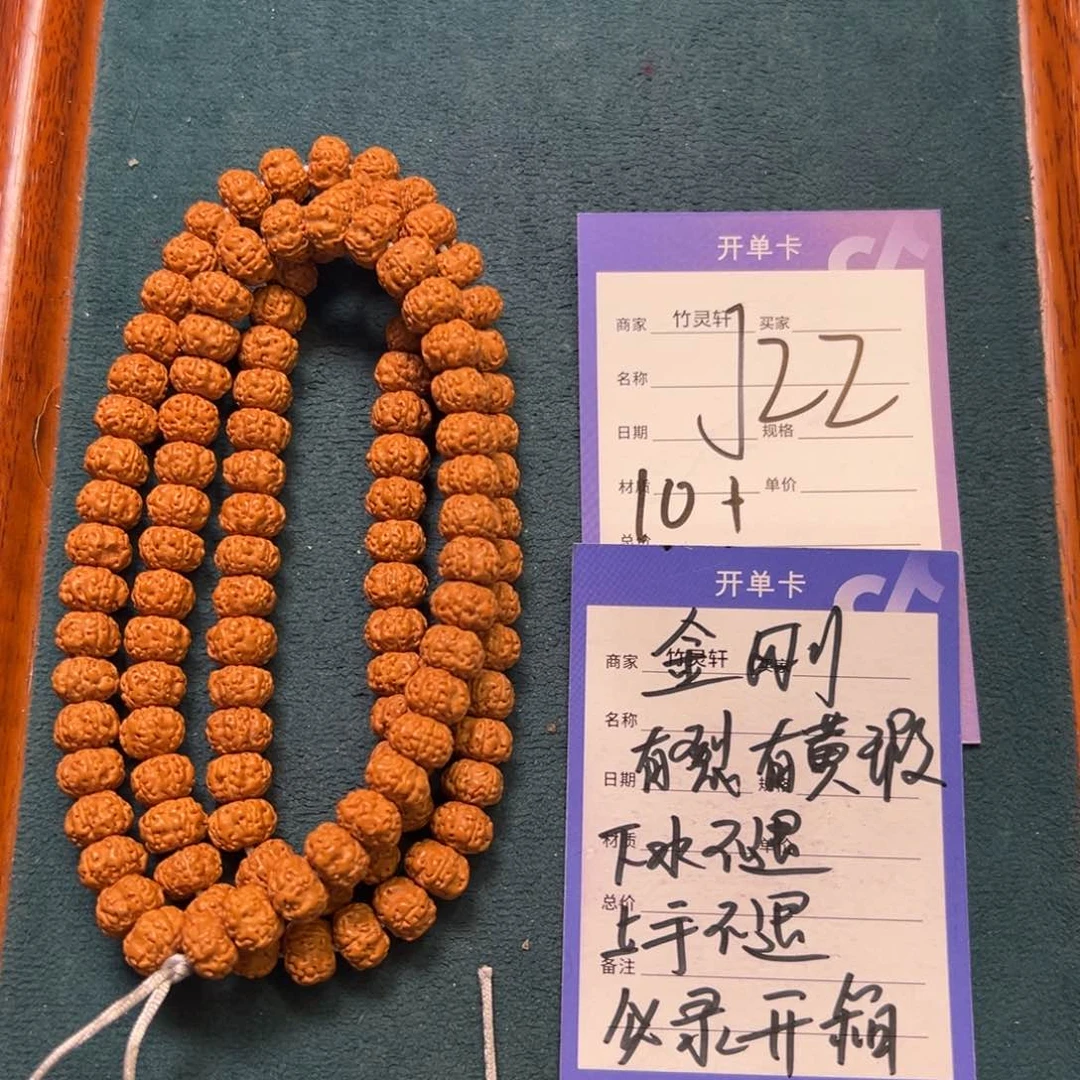 开单卡
商家 竹灵轩 买家
J22
名称
日期 规格
材质 单价
10+
总价
开单卡
商家 竹灵轩 买家
金刚
名称
有裂 有黄瑕
日期 规格
下水不退
材质 单价
总价
上手不退
备注
必录开箱